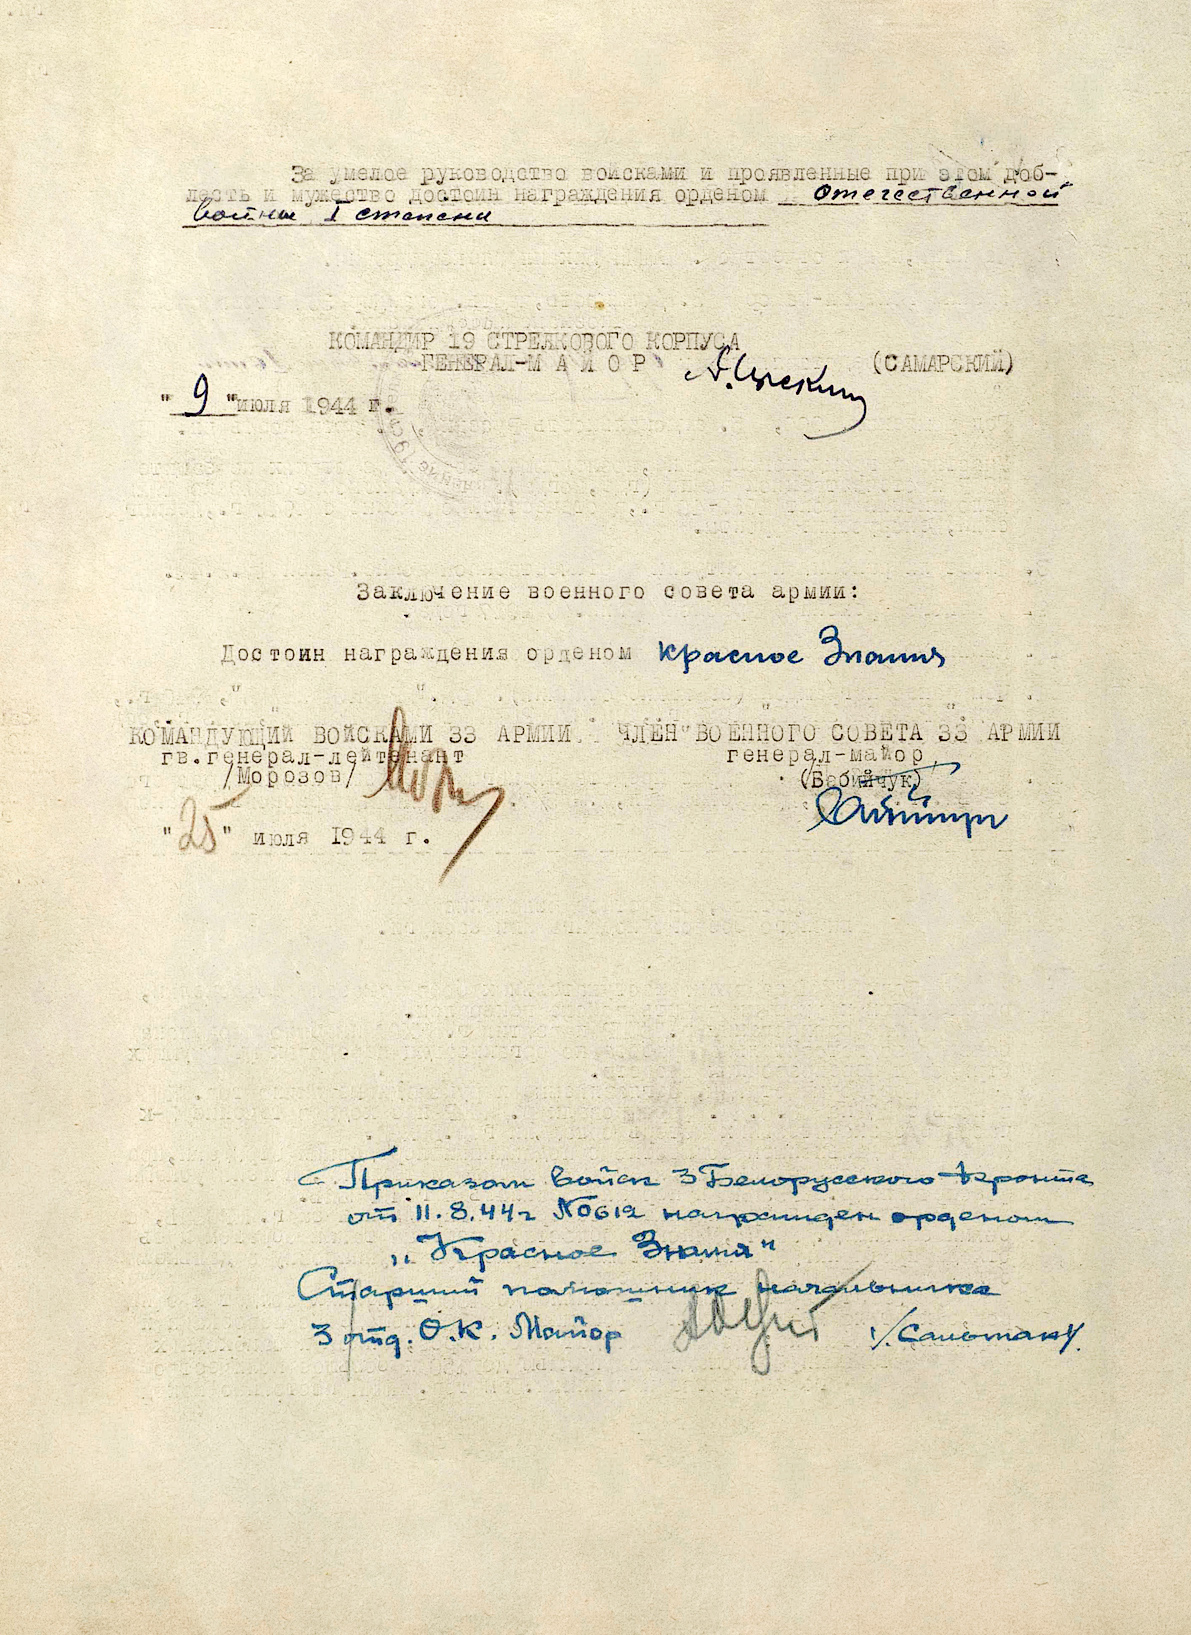 За умелое руководство войсками и проявленные при этом доб-
лесть и мужество достоин награждения орденом Отечественной
войны I степени
КОМАНДИР 19 СТРЕЛКОВОГО КОРПУСА
ГЕНЕРАЛ-М А Й О Р (САМАРСКИЙ)
"9" июля 1944 г.
Заключение военного совета армии:
Достоин награждения орденом Красное Знамя
КОМАНДУЮЩИЙ ВОЙСКАМИ 33 АРМИИ ЧЛЕН ВОЕННОГО СОВЕТА 33 АРМИИ
гв.генерал-лейтенант генерал-майор
/Морозов/ (Бабийчук)
"25" июля 1944 г.
Приказом войск 3 Белорусского фронта
от 11.8.44г №0619 награжден орденом
„Красное Знамя"
Старший помошник начальника
3 отд. О.К. Майор